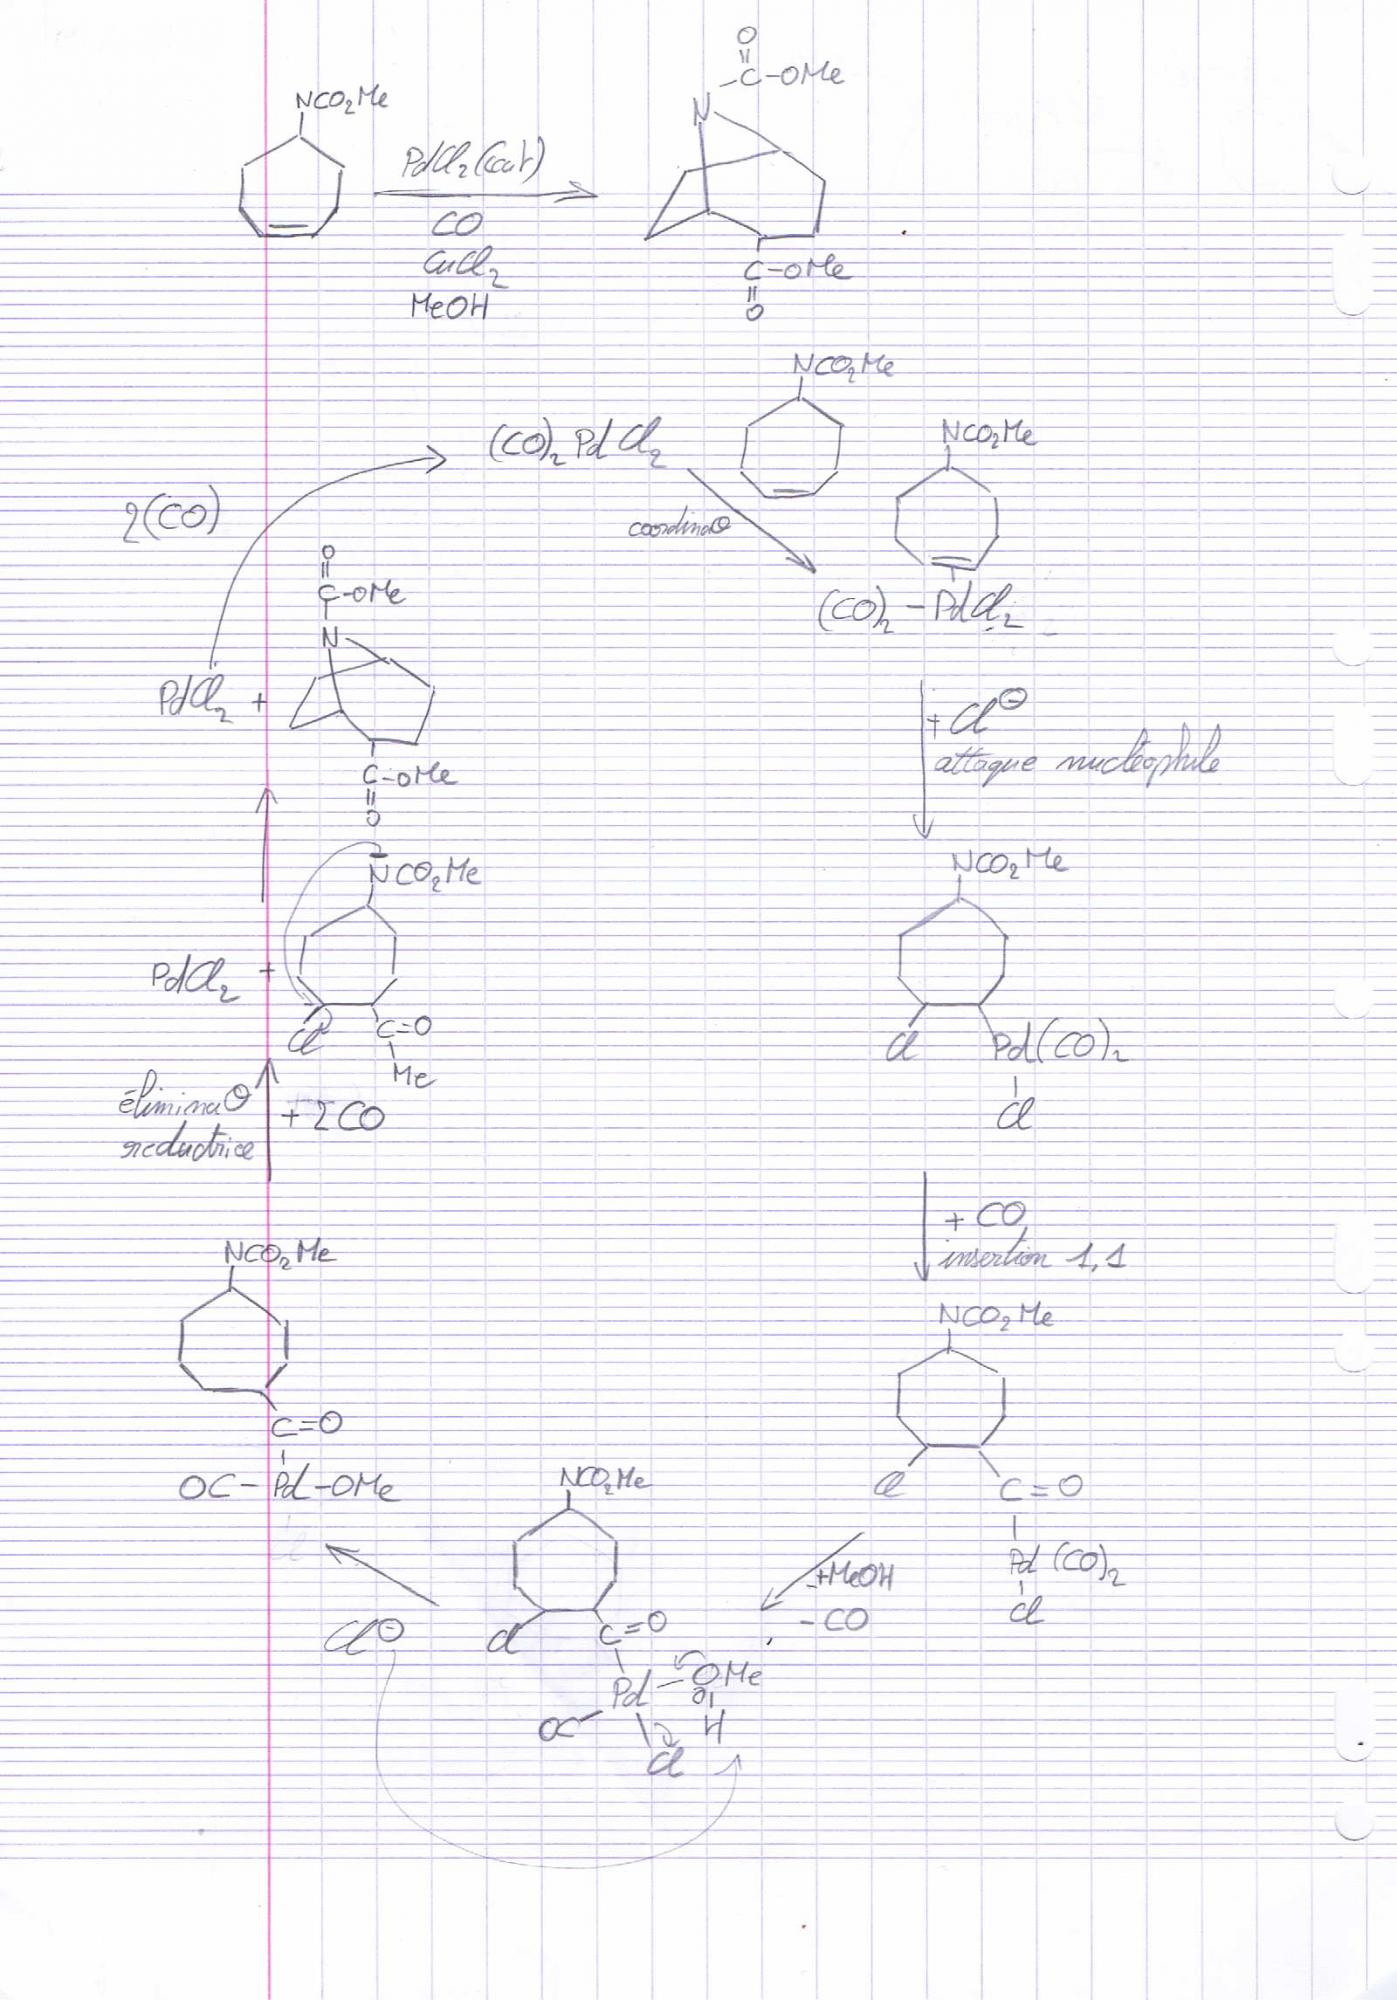 O
C-OMe
NCO2Me
N
PdCl2(cat)
CO
CuCl2
MeOH
C-OMe
O
NCO2Me
(CO)2PdCl2
NCO2Me
2(CO)
coordinaΘ
O
C-OMe
(CO)2-PdCl2
N
PdCl2 +
+ Cl⊖
attaque nucléophile
C-OMe
O
NCO2Me
NCO2Me
PdCl2 +
Cl
C=O
Me
Cl
Pd(CO)2
Cl
éliminaΘ
réductrice
+ 2CO
+ CO
insertion 1,1
NCO2Me
NCO2Me
C=O
OC-Pd-OMe
NCO2Me
Cl
C=O
Pd(CO)2
Cl
+MeOH
-CO
Cl⊖
Cl
C=O
Pd-OMe
OC
H
Cl